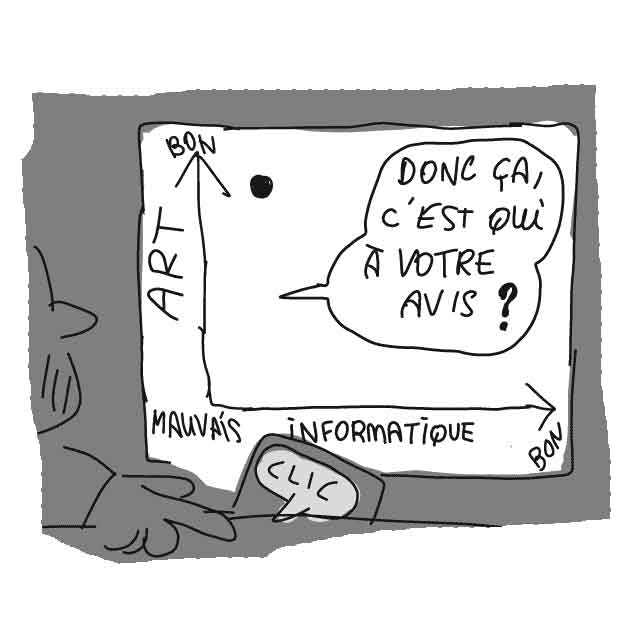 BON
ART
DONC ÇA,
C'EST QUI
À VOTRE
AVIS ?
MAUVAIS
INFORMATIQUE
BON
CLIC